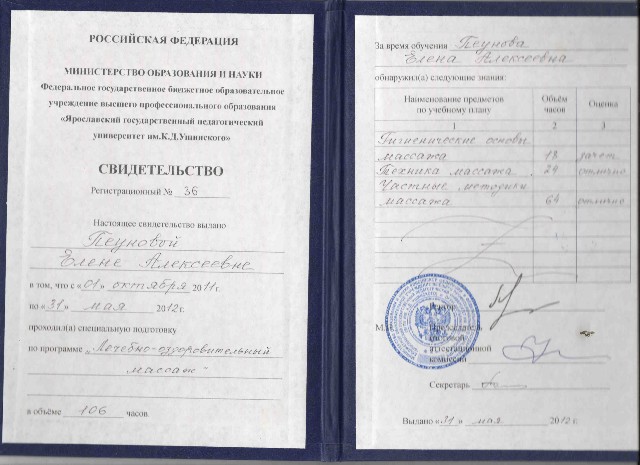 РОССИЙСКАЯ ФЕДЕРАЦИЯ
МИНИСТЕРСТВО ОБРАЗОВАНИЯ И НАУКИ
Федеральное государственное бюджетное образовательное
учреждение высшего профессионального образования
«Ярославский государственный педагогический
университет им.К.Д.Ушинского»
СВИДЕТЕЛЬСТВО
Регистрационный № 36
Настоящее свидетельство выдано
Пеуновой
Елене Алексеевне
в том, что с «01» октября 2011г.
по «31» мая 2012г.
проходил(а) специальную подготовку
по программе „Лечебно-оздоровительный
массаж"
в объёме 106 часов
За время обучения Пеунова
Елена Алексеевна
обнаружил(а) следующие знания:
Наименование предметов по учебному плану Объём часов Оценка
1 2 3
Гигиенические основы
массажа 18 зачет
Техника массажа 24 отлично
Частные методики
массажа 64 отлично
Ректор
М.П.
Председатель
итоговой
аттестационной
комиссии
Секретарь
Выдано «31» мая 2012 г.